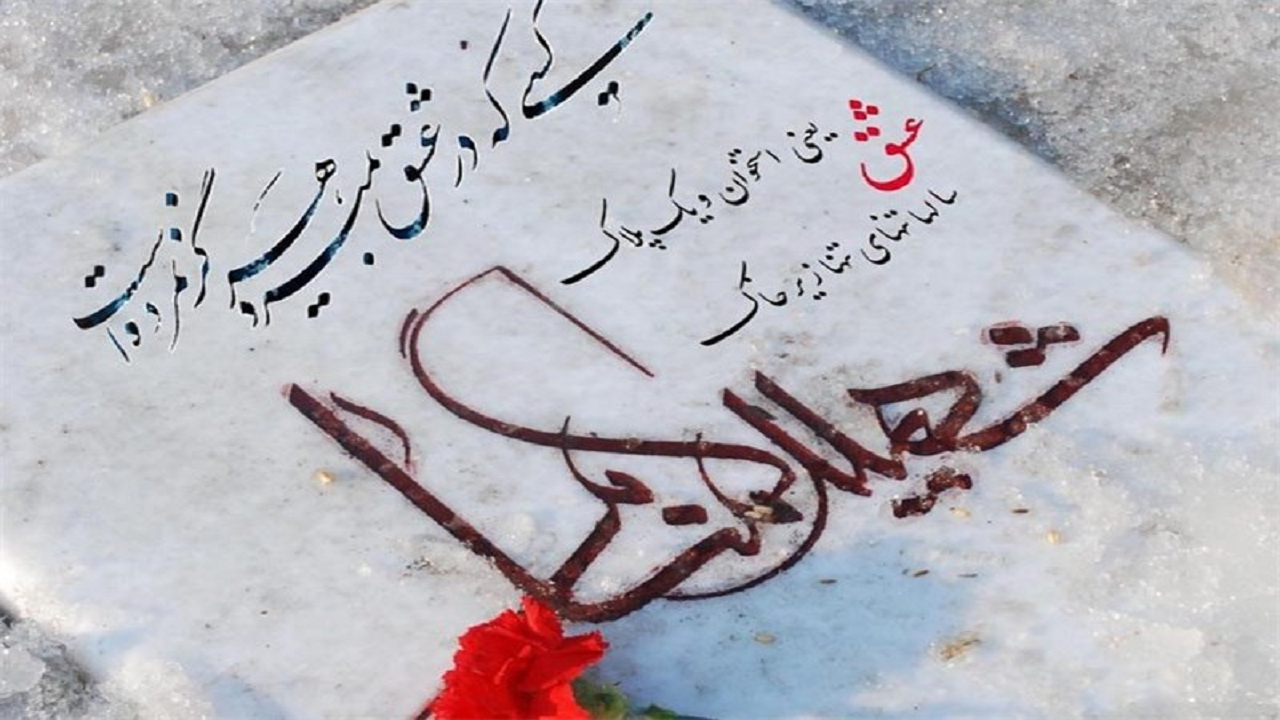 کسی که در عشق میرد هرگز نمرده است
عشق یعنی استخوان و یک پلاک
سالها تنهای تنها زیر خاک
شهید